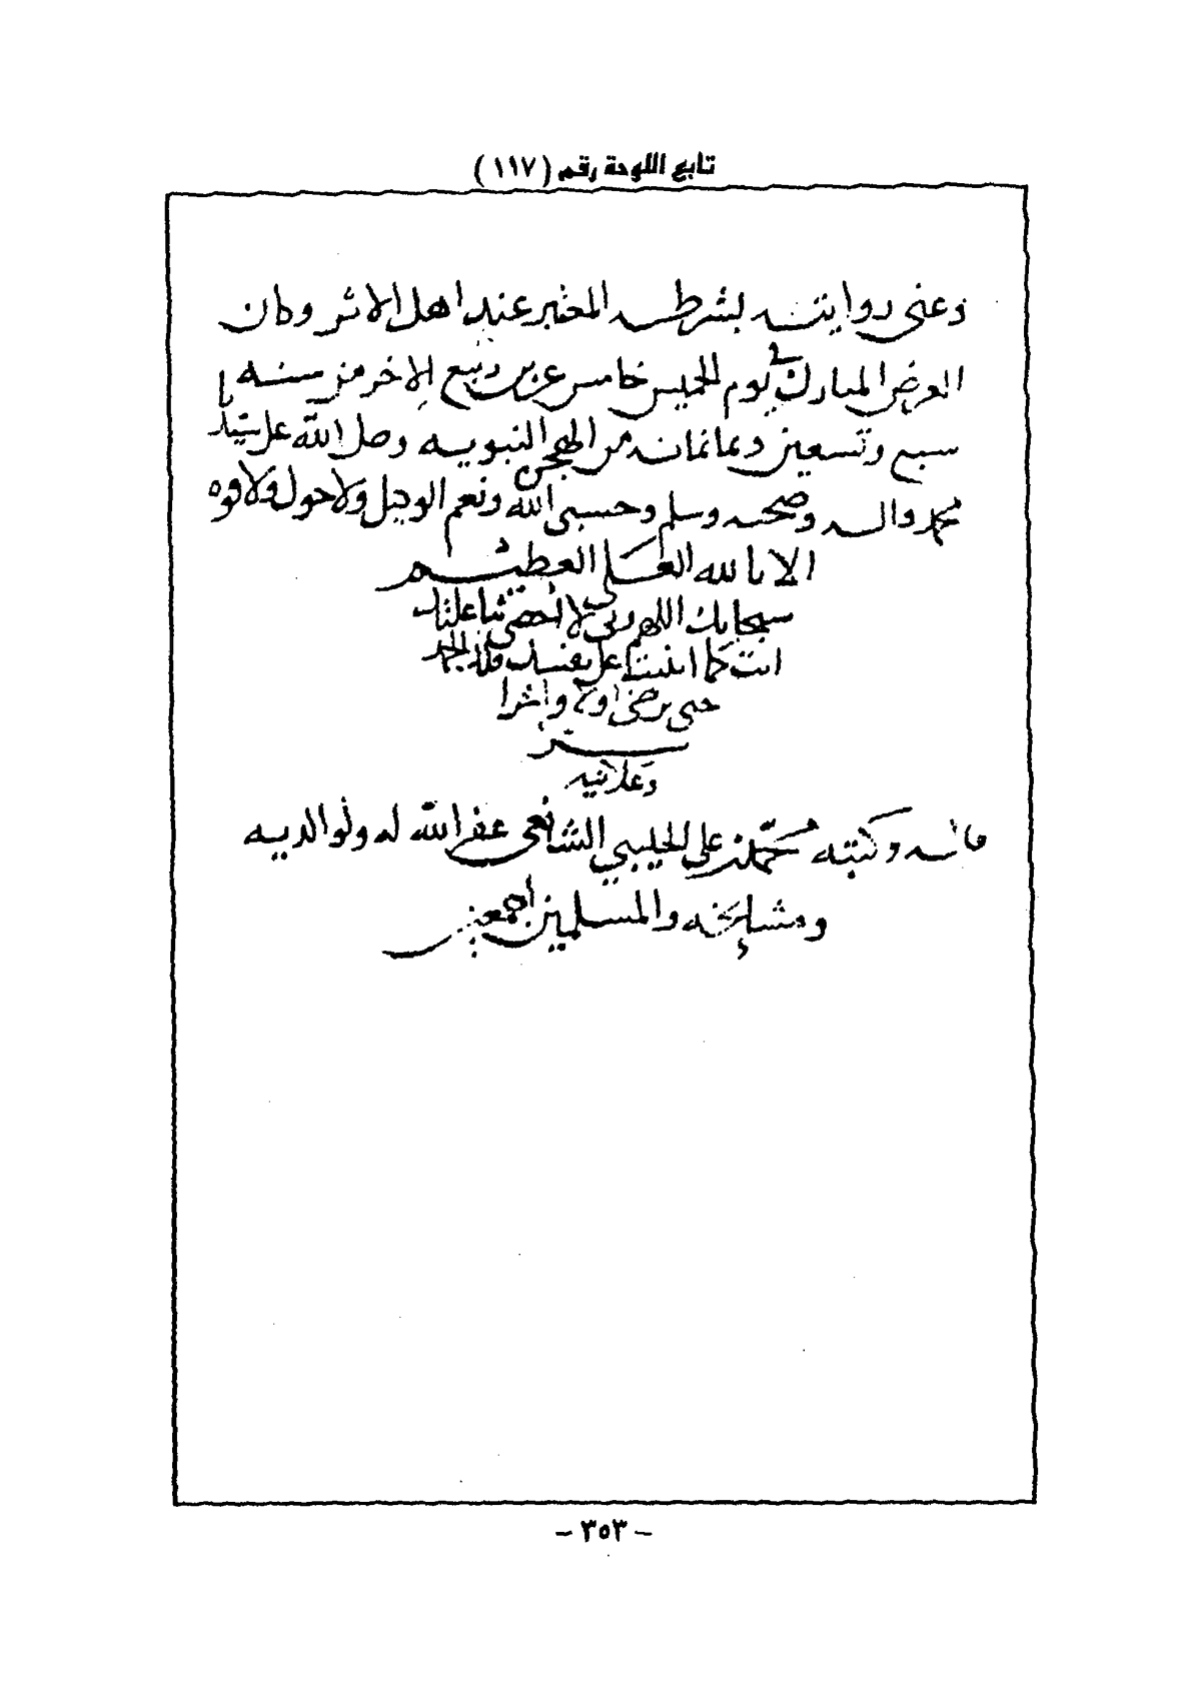 تابع اللوحة رقم (١١٧)
وعنى روايته بشرطه المعتبر عند اهل الاثر وكان
العرض المبارك في يوم الخميس خامس عشرين ربيع الاخر من سنه
سبع وتسعين وثمانمانه من الهجرة النبويه وصلى الله على سيدنا
محمد واله وصحبه وسلم وحسبى الله ونعم الوكيل ولا حول ولا قوه
الا بالله العلى العظيم
سبحانك اللهم ربى لا احصى ثنا عليك
انت كما اثنيت على نفسك فلك الحمد
حتى ترضى اولا واخرا
سرا
وعلانيه
قاله وكتبه محمد بن على الحليبي الشافعى عفر الله له ولوالديه
ومشايخه والمسلمين اجمعين
- ٣٥٣ -